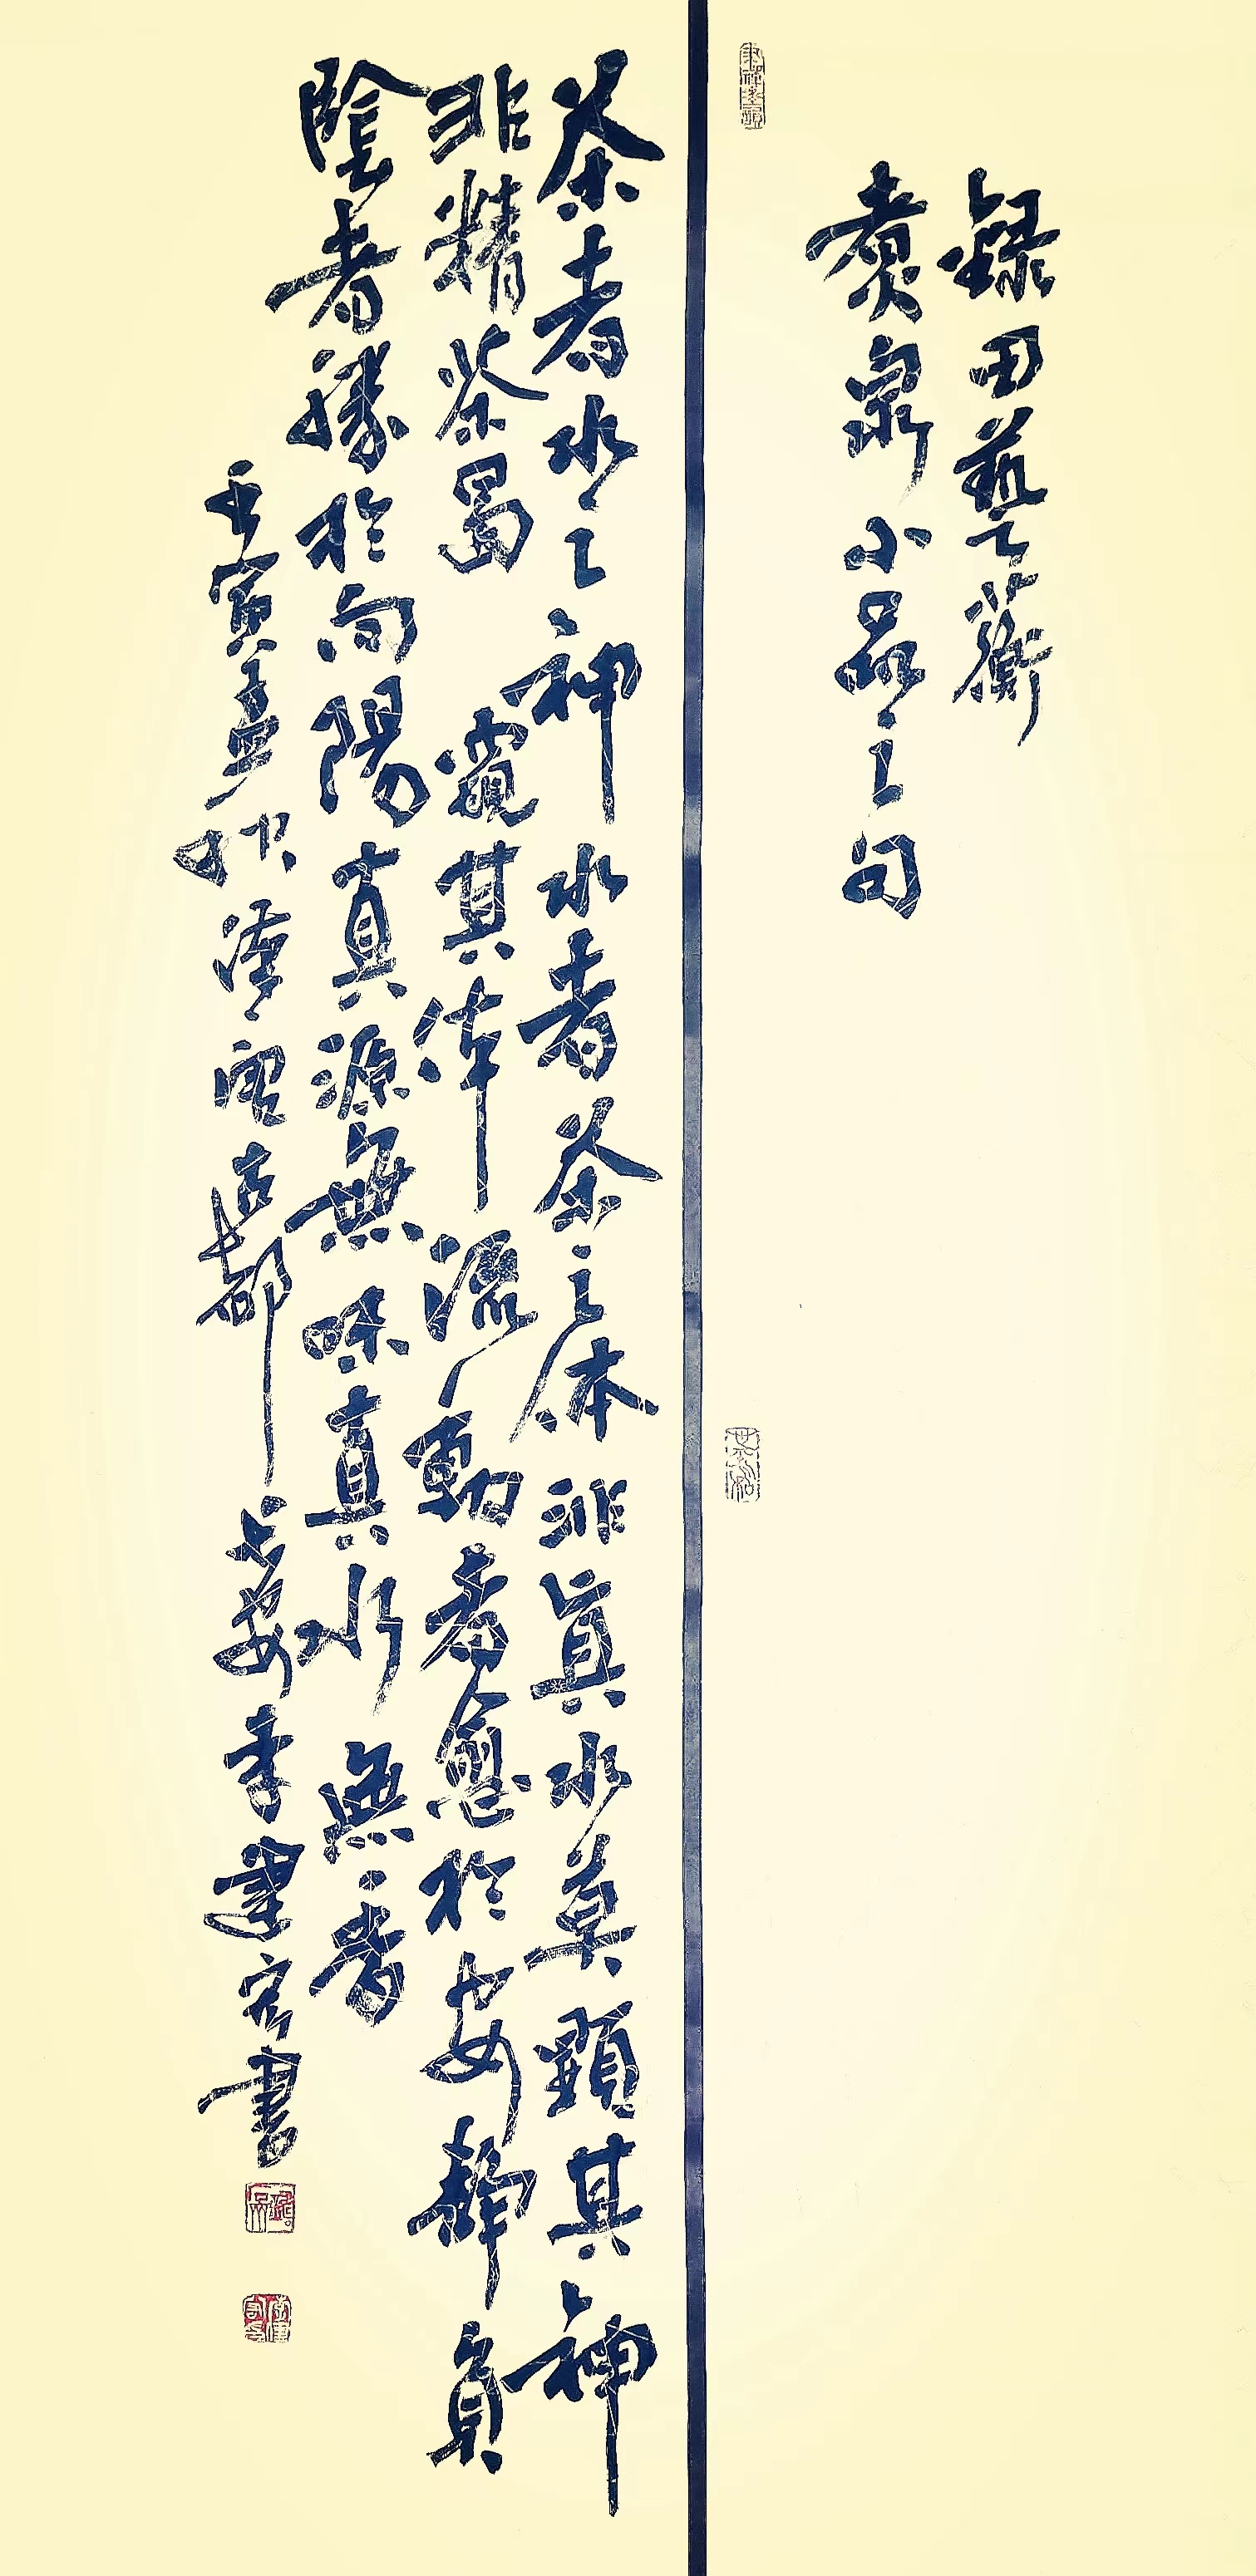 錄田藝蘅
煑泉小品之句
茶者水之神水者茶之体非真水莫顯其神
非精茶曷窺其体流動者愈於安静負
陰者勝於向陽真源無味真水無香
壬寅孟秋漢唐古都长安李建書